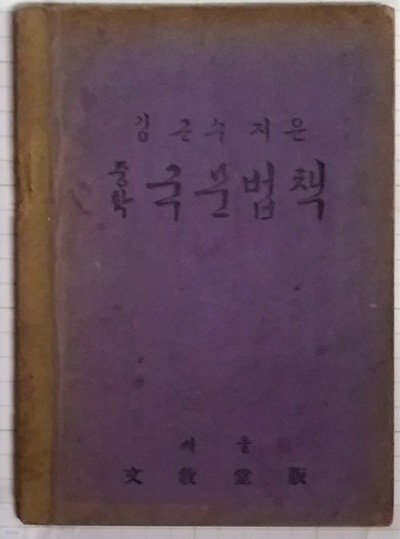 김근수 지은
중학 국문법책
서울
文敎堂版